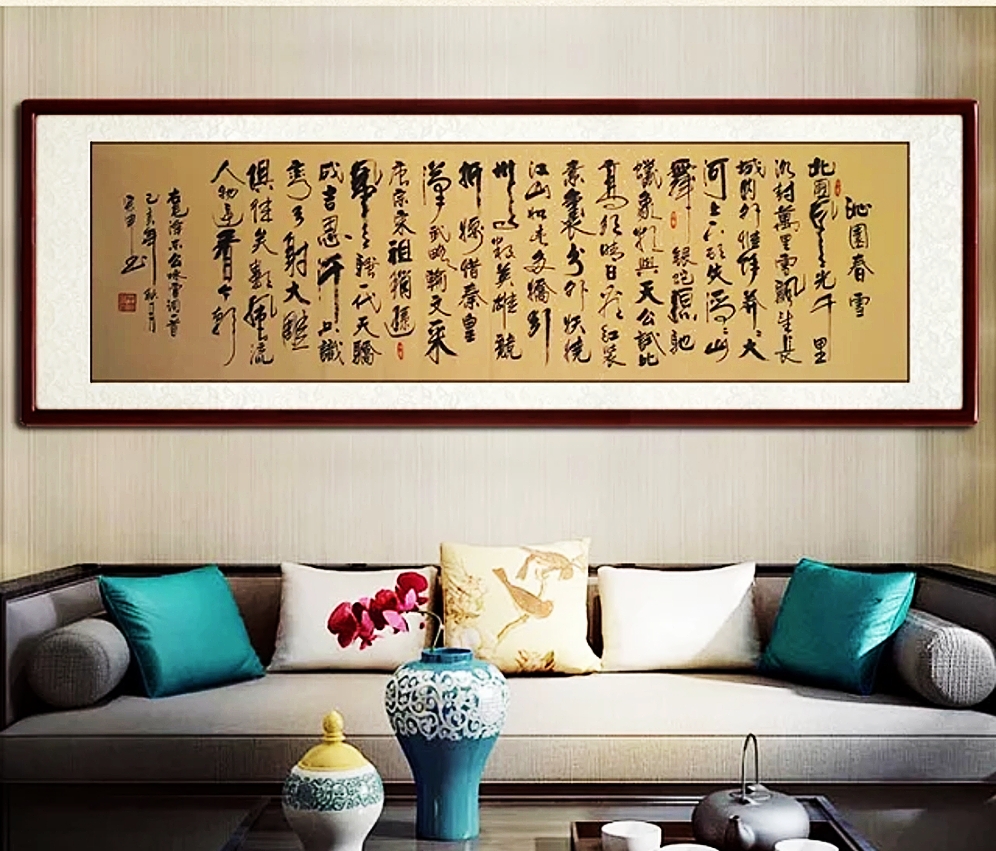 沁園春雪
北國風光千里
冰封萬里雪飄望長
城內外惟餘莽々大
河上下頓失滔々山
舞銀蛇原馳
蠟象欲與天公試比
高須晴日看紅裝
素裹分外妖嬈
江山如此多嬌引
無數英雄競
折腰惜秦皇
漢武略輸文采
唐宗宋祖稍遜
風騷一代天驕
成吉思汗只識
彎弓射大雕
俱往矣數風流
人物還看今朝
毛澤東公咏雪詞一首
己亥年秋月
書